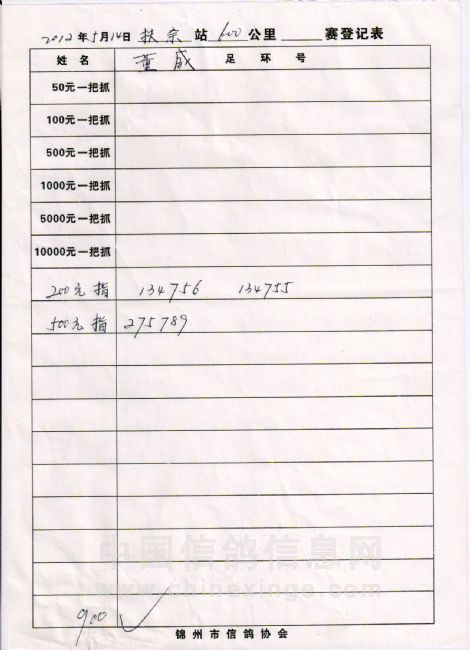 2012年5月14日 扶宗 站 600 公里______赛登记表
姓名 董威 足环号
50元一把抓
100元一把抓
500元一把抓
1000元一把抓
5000元一把抓
10000元一把抓
200元指 134756 134755
500元指 275789
中国信鸽信息网
www.chinaxinge.com
900 ✓
锦州市信鸽协会